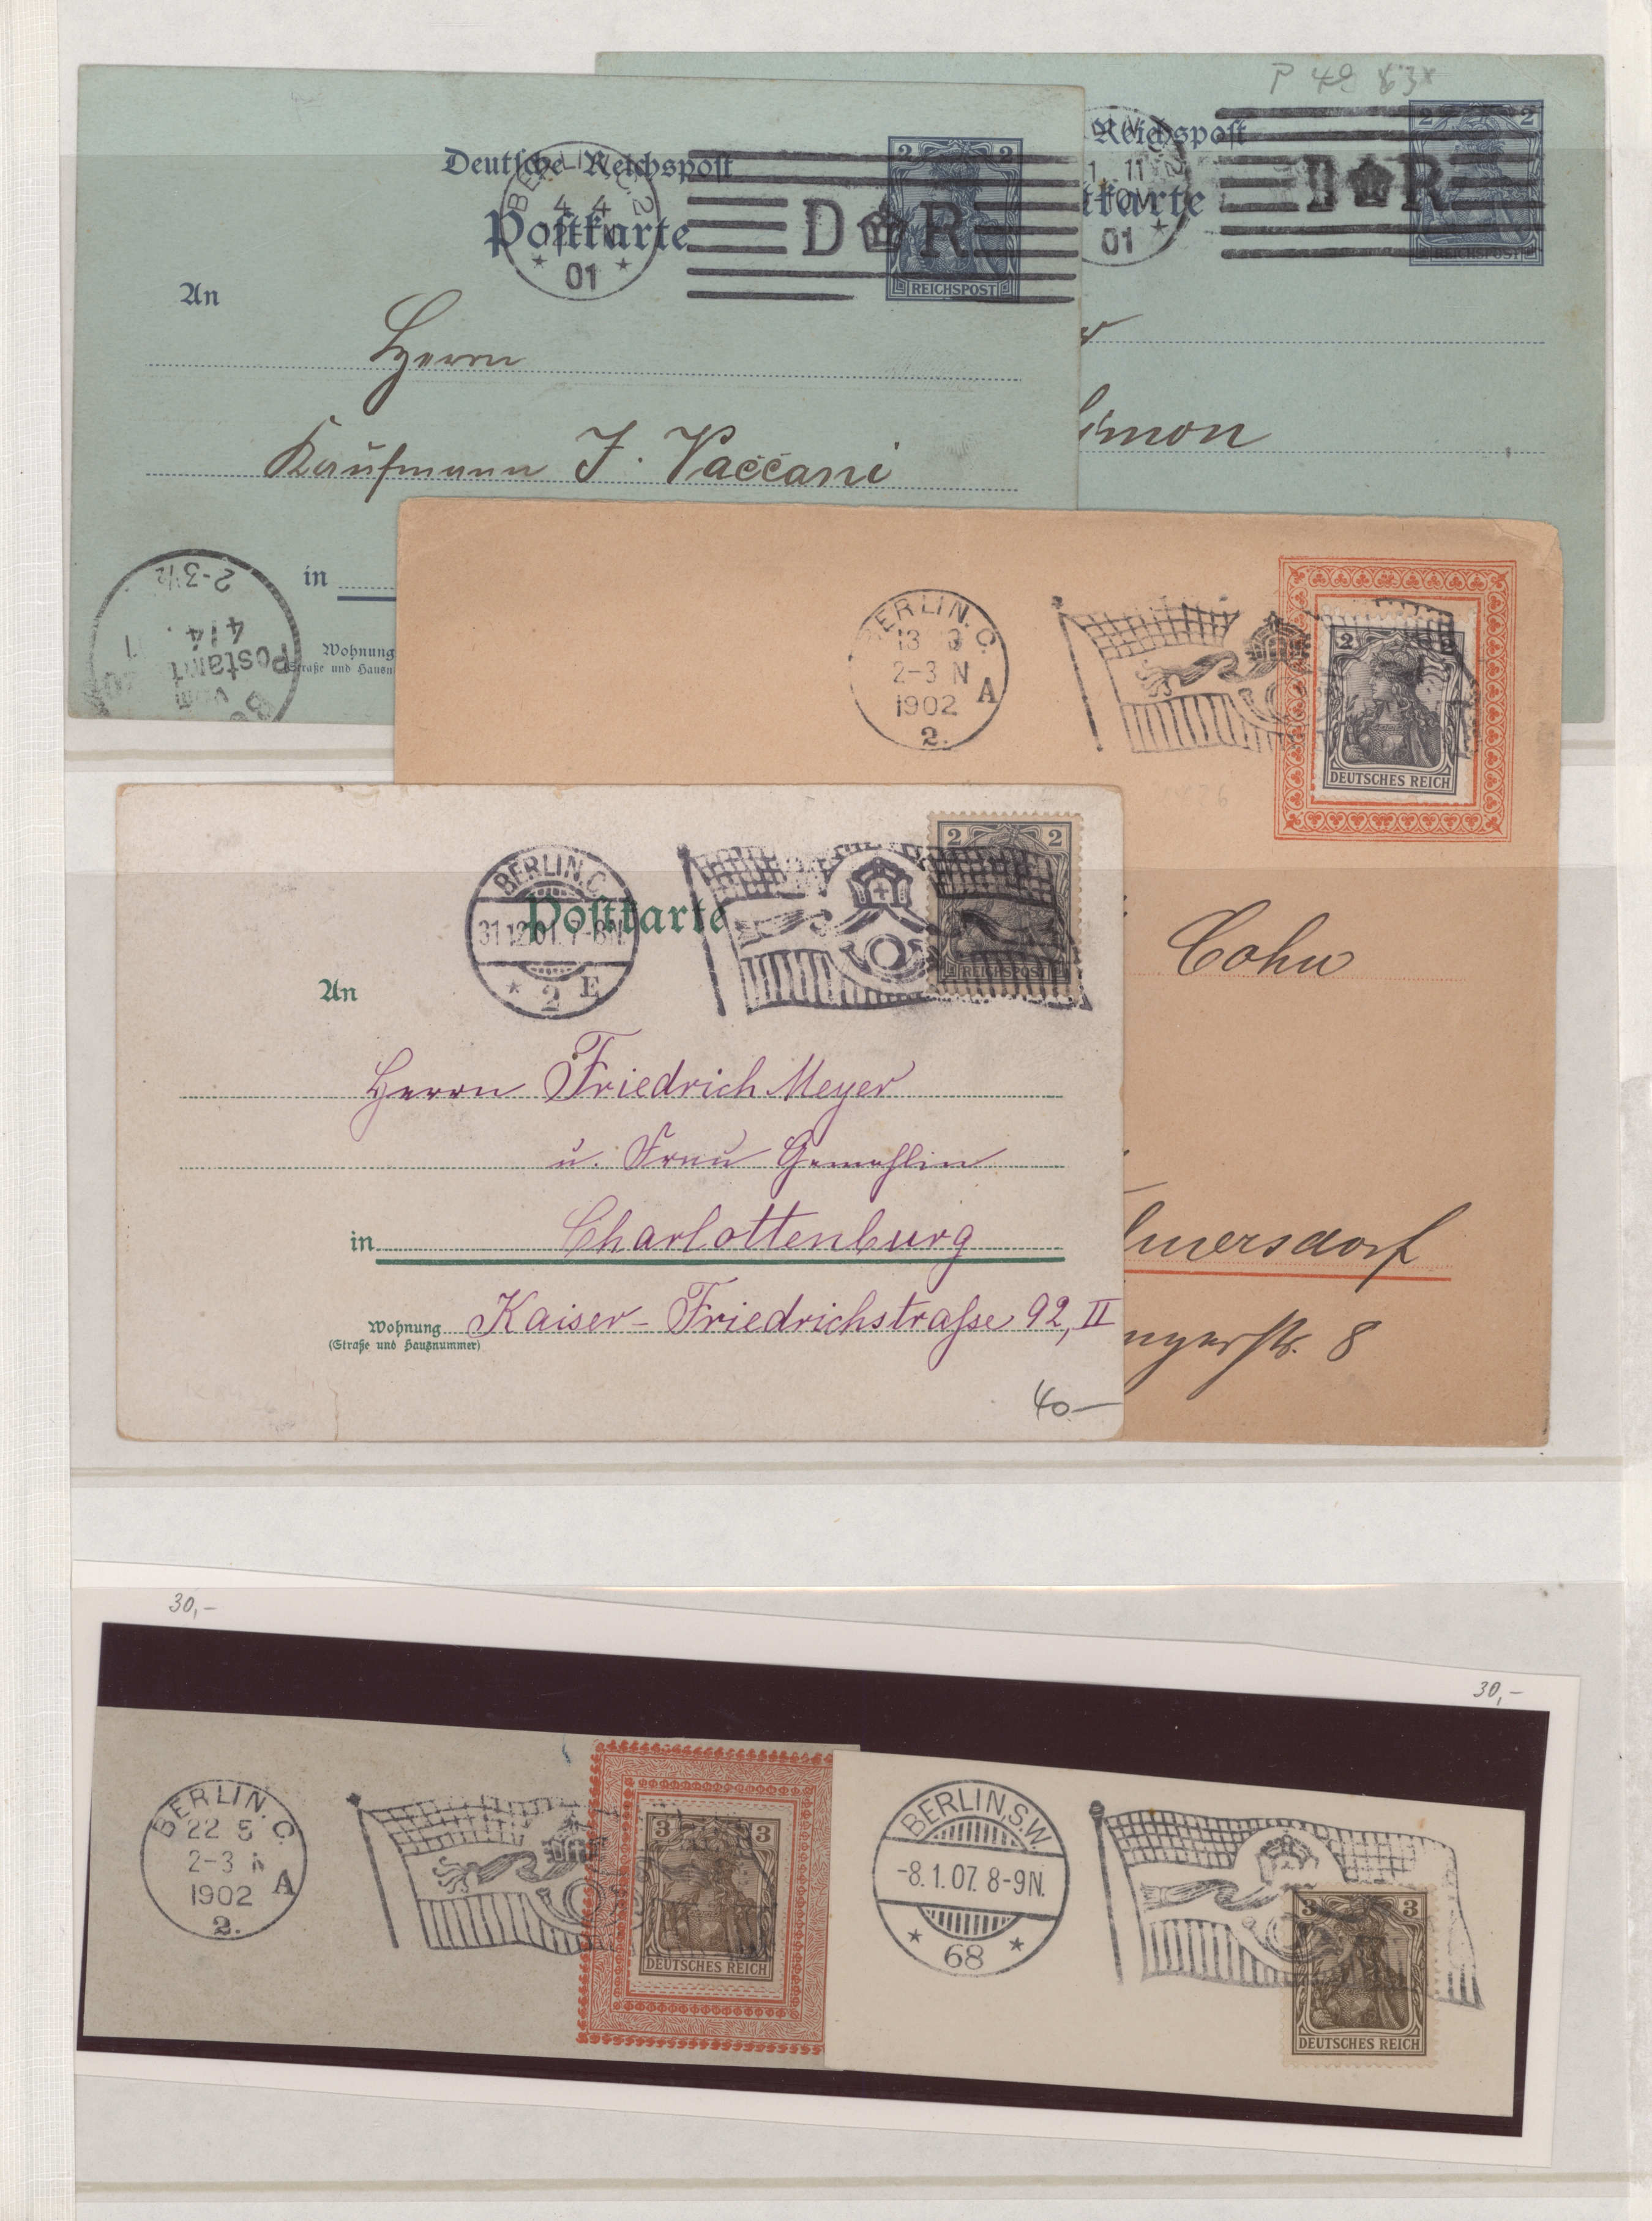 P 49
Deutsche Reichspost
Postkarte
BERLIN C 2
4 4
01
2 2
D R
REICHSPOST
An
Herrn
Kaufmann J. Vaccani
in
Wohnung
Postamt
4/4
2-3½
Reichspost
11
01
D R
2 2
REICHSPOST
BERLIN. C.
13 3
2-3 N
1902
A
2.
2 2
DEUTSCHES REICH
Cohn
8
Postkarte
BERLIN. C.
31.12.01. 7-8N.
* 2 E
2 2
REICHSPOST
An
Herrn Friedrich Meyer
u. Frau Gemahlin
in Charlottenburg
Wohnung Kaiser-Friedrichstraße 92, II
(Straße und Hausnummer)
40.-
30,-
30,-
BERLIN. C.
22 5
2-3 N
1902
A
2.
3 3
DEUTSCHES REICH
BERLIN, S.W.
-8.1.07. 8-9N.
* 68 *
3 3
DEUTSCHES REICH